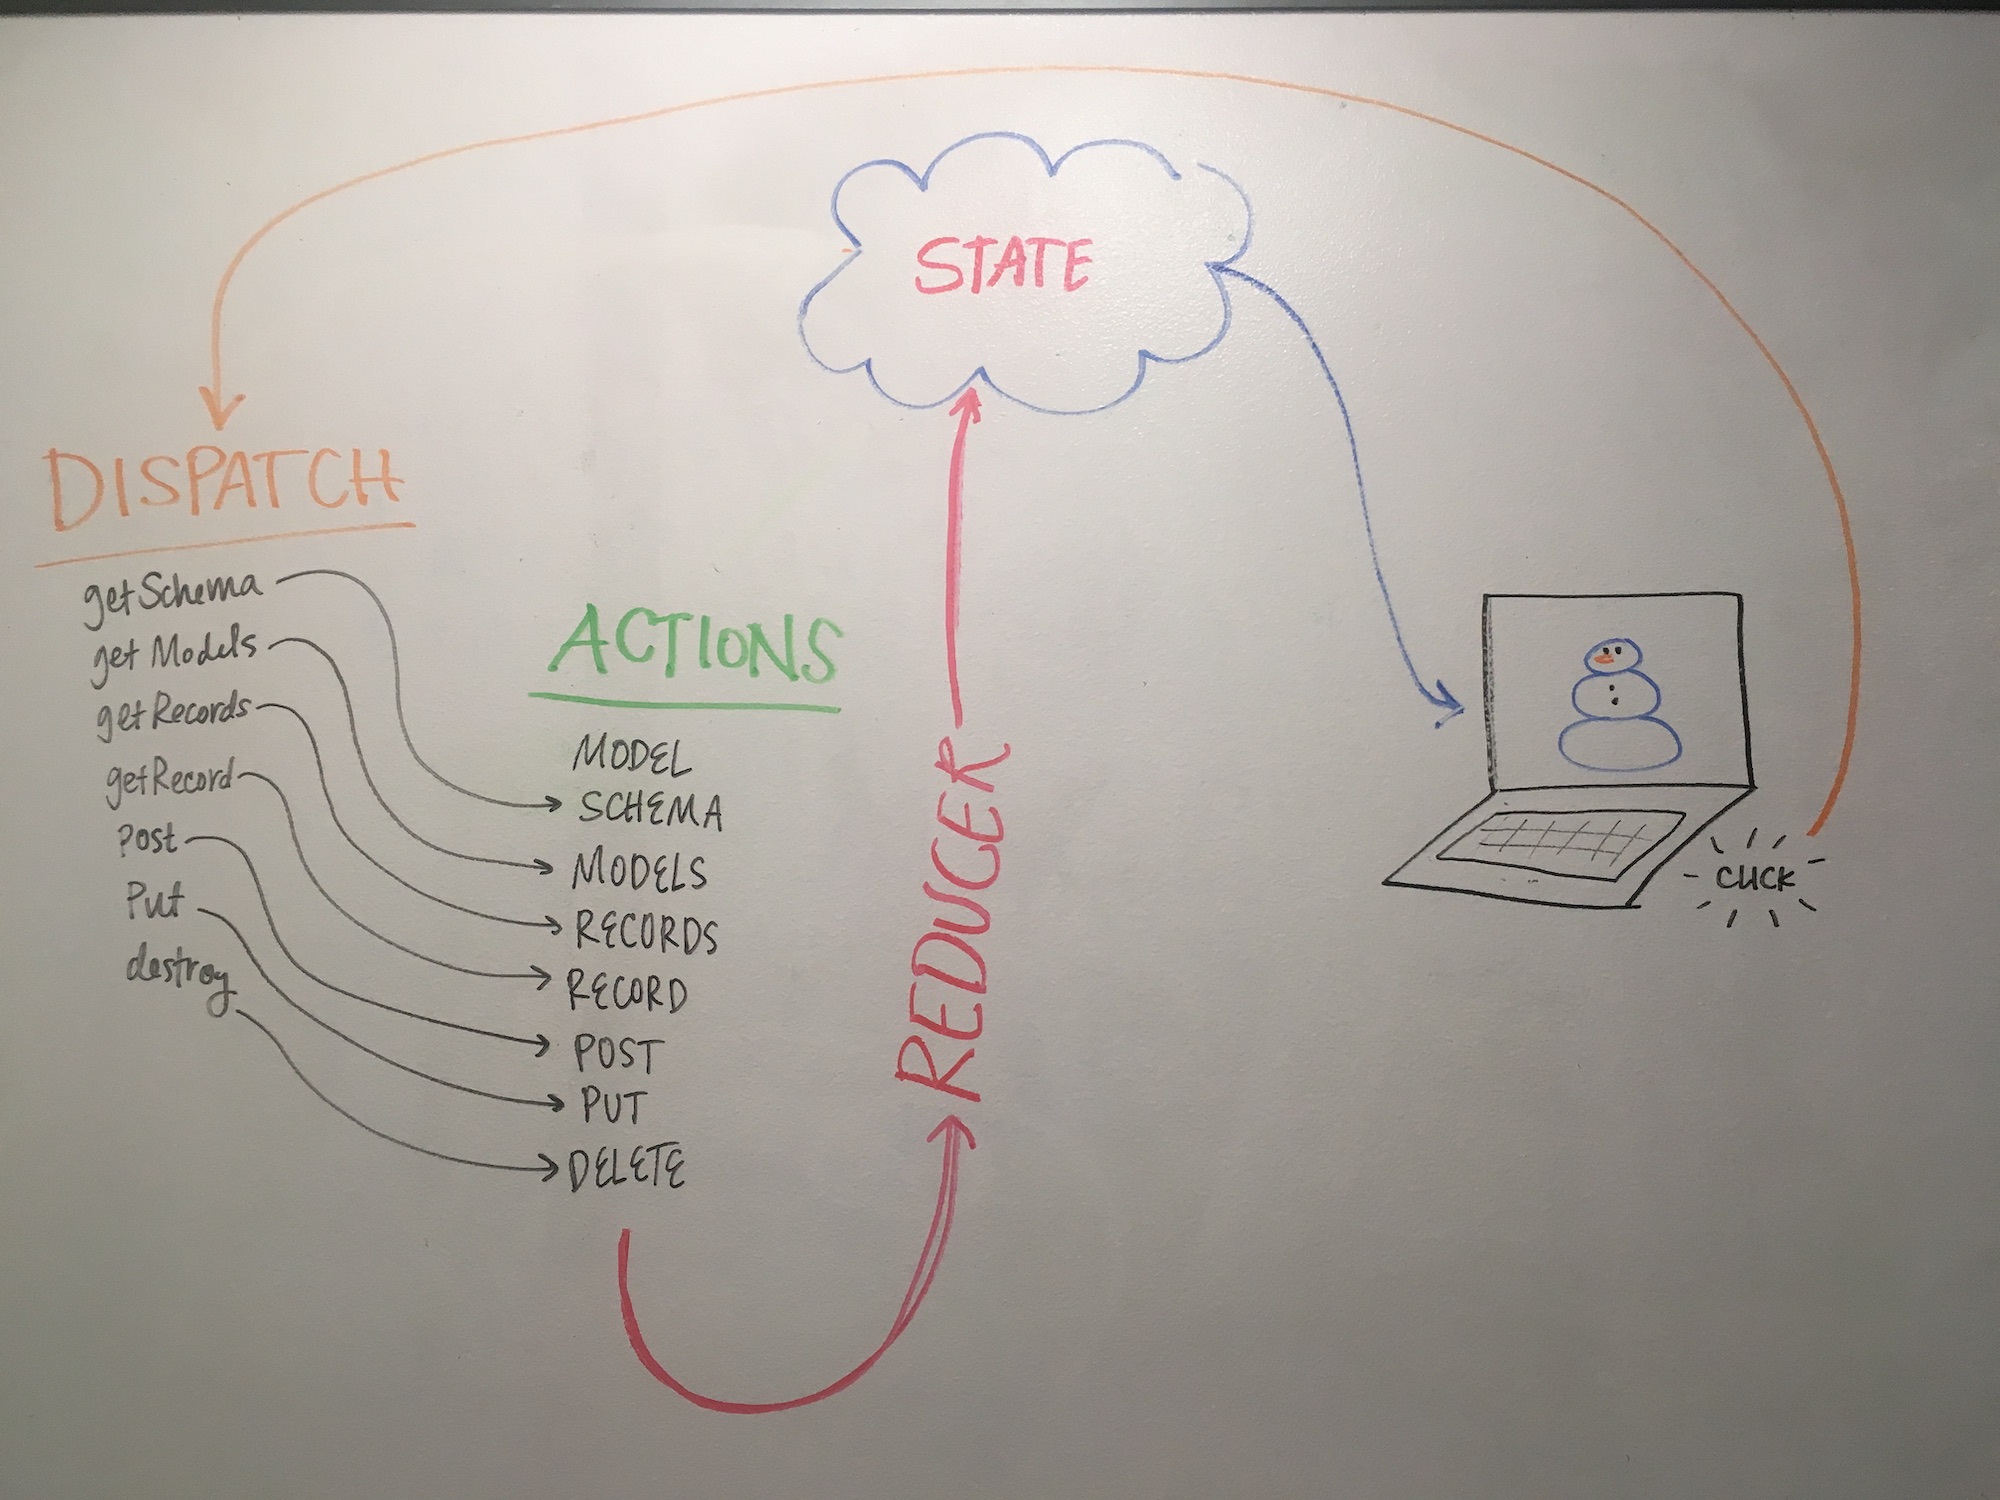 STATE
DISPATCH
getSchema
get Models
getRecords
getRecord
Post
Put
destroy
ACTIONS
MODEL
SCHEMA
MODELS
RECORDS
RECORD
POST
PUT
DELETE
REDUCER
CLICK